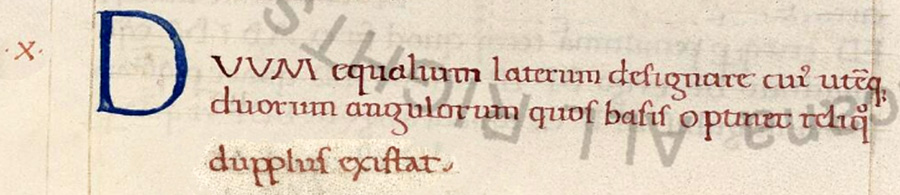 ·x·
DVVM equalium laterum deſignare cuiꝰ utēq;
duorum angulorum quoſ baſiſ optinet reliqͦ
duppluſ exiſtat.
ALL RIGHTS